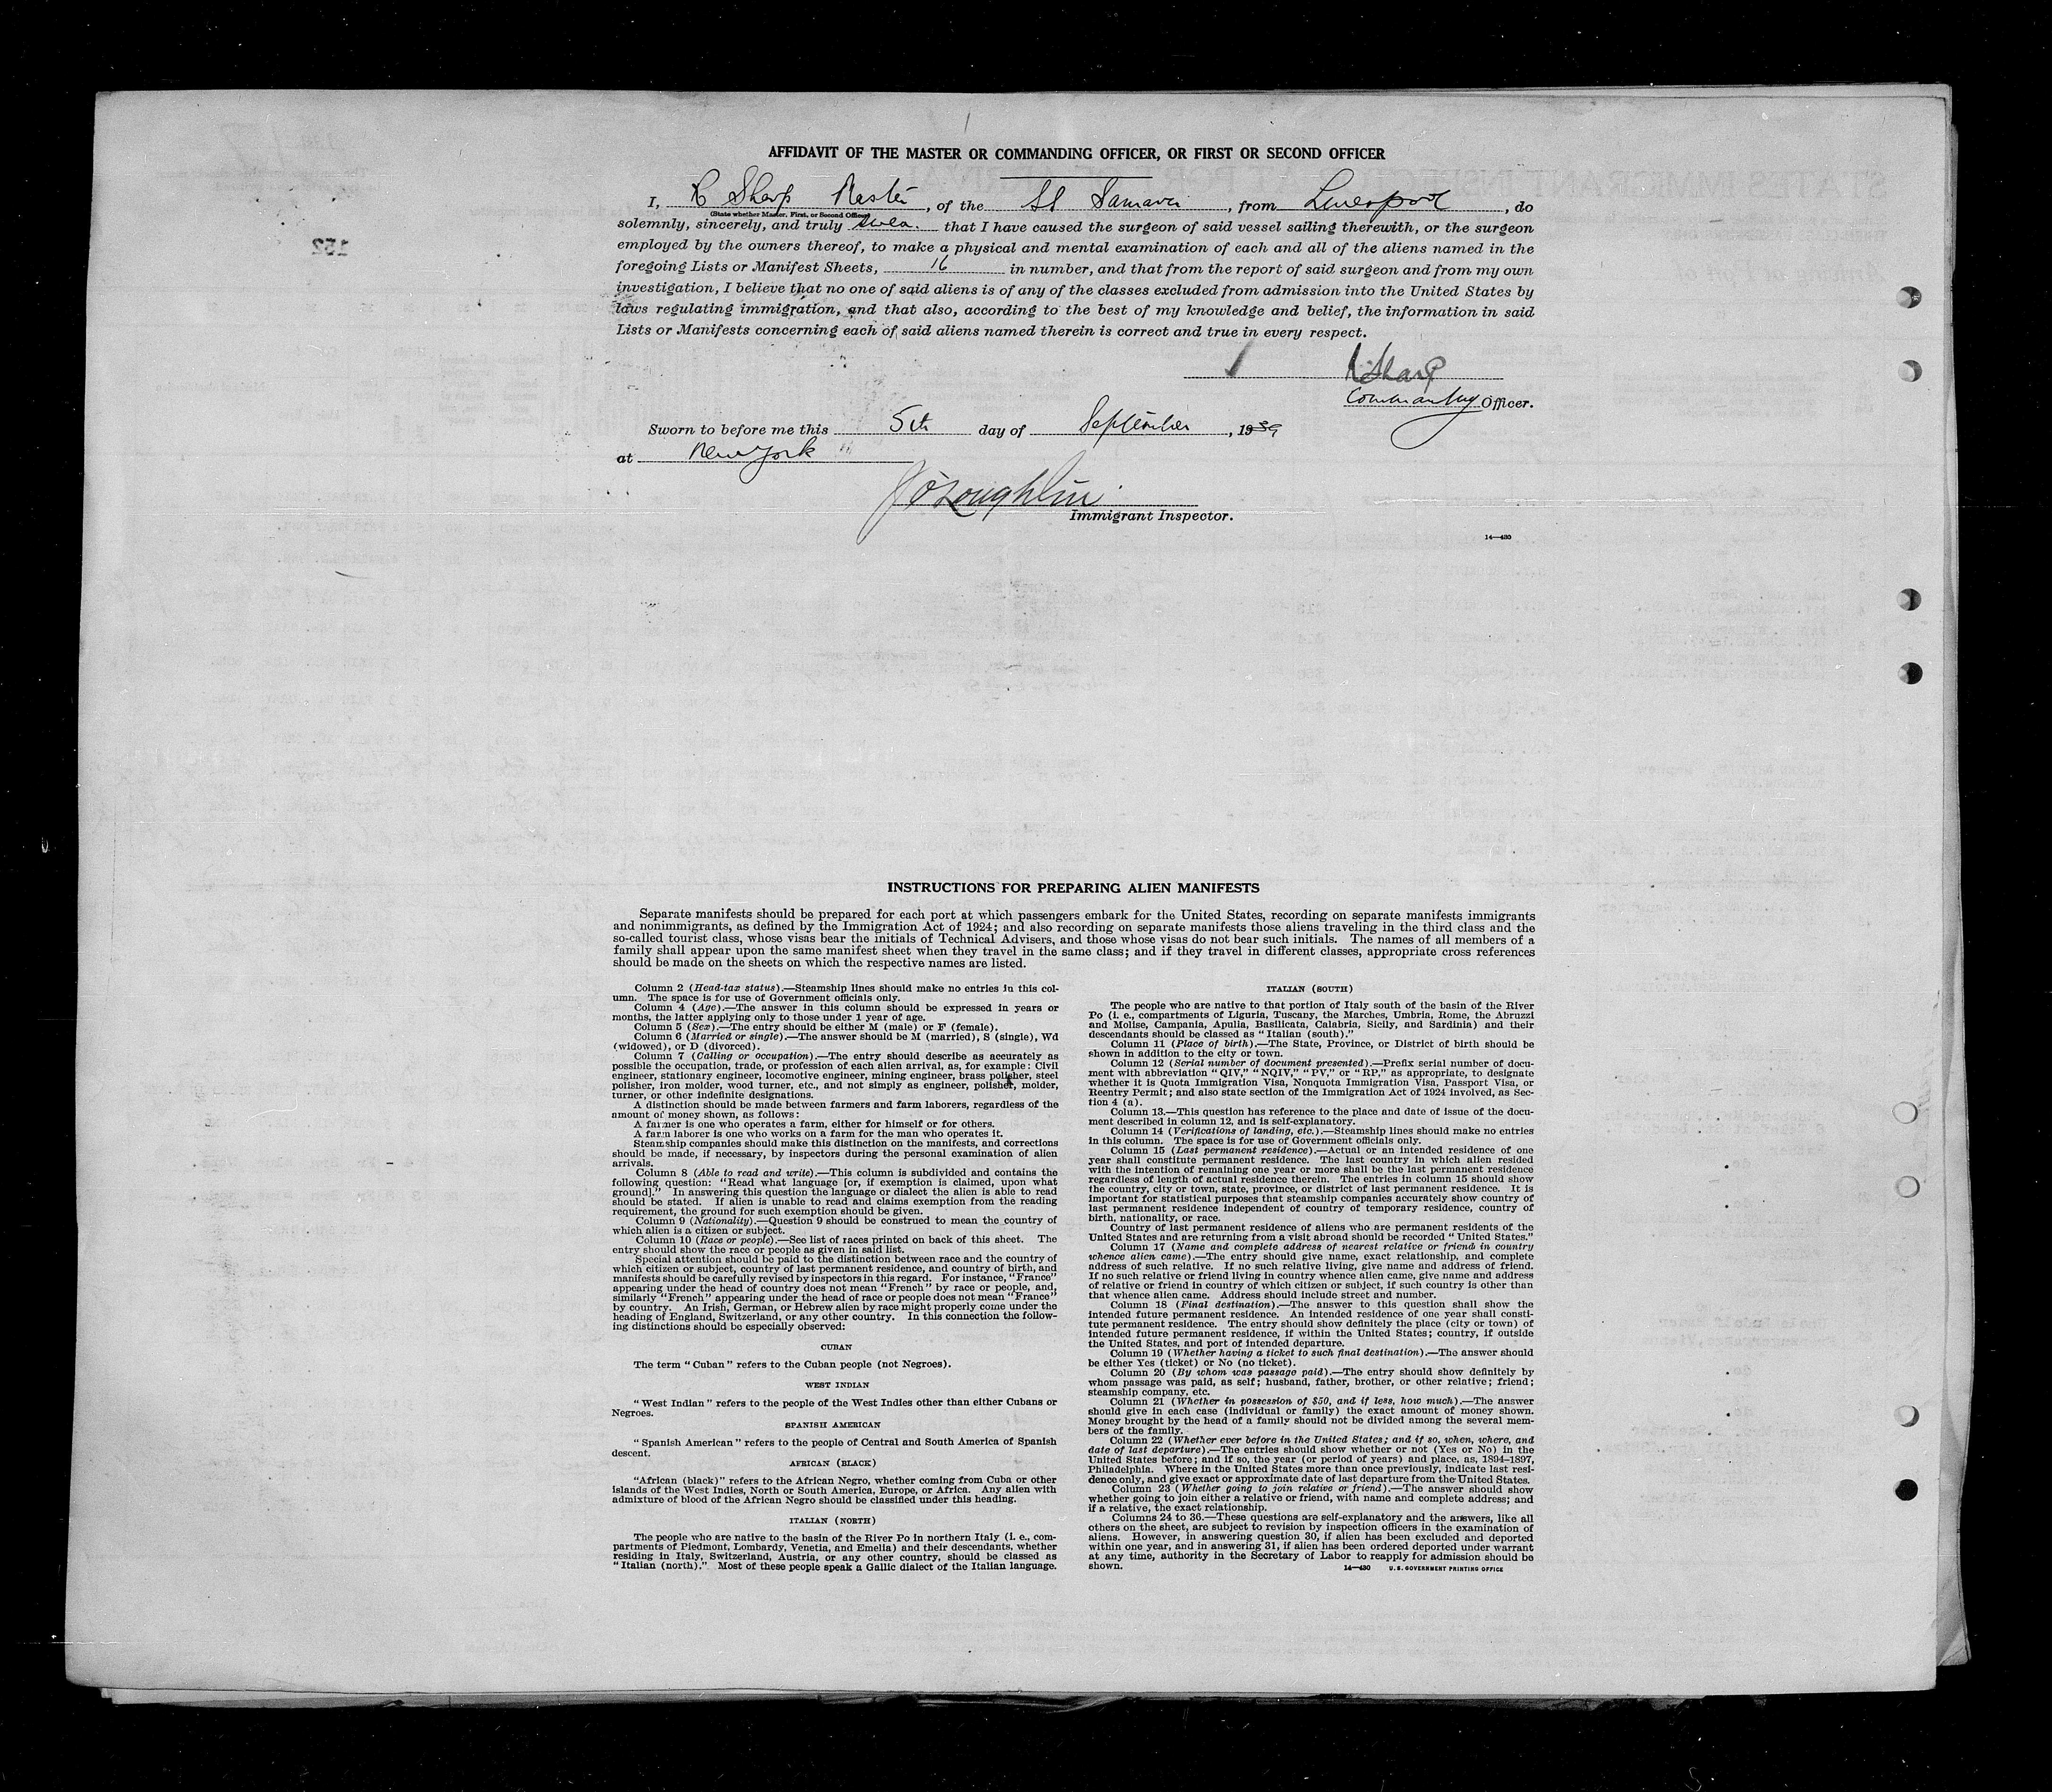 AFFIDAVIT OF THE MASTER OR COMMANDING OFFICER, OR FIRST OR SECOND OFFICER
I, R Sharp Master, of the SS Samaria, from Liverpool, do
(State whether Master, First, or Second Officer)
solemnly, sincerely, and truly swear that I have caused the surgeon of said vessel sailing therewith, or the surgeon
employed by the owners thereof, to make a physical and mental examination of each and all of the aliens named in the
foregoing Lists or Manifest Sheets, 16 in number, and that from the report of said surgeon and from my own
investigation, I believe that no one of said aliens is of any of the classes excluded from admission into the United States by
laws regulating immigration, and that also, according to the best of my knowledge and belief, the information in said
Lists or Manifests concerning each of said aliens named therein is correct and true in every respect.
R Sharp
Commanding Officer.
Sworn to before me this 5th day of September, 1939
at New York
J O'Loughlin
Immigrant Inspector.
14—430
152
INSTRUCTIONS FOR PREPARING ALIEN MANIFESTS
Separate manifests should be prepared for each port at which passengers embark for the United States, recording on separate manifests immigrants
and nonimmigrants, as defined by the Immigration Act of 1924; and also recording on separate manifests those aliens traveling in the third class and the
so-called tourist class, whose visas bear the initials of Technical Advisers, and those whose visas do not bear such initials. The names of all members of a
family shall appear upon the same manifest sheet when they travel in the same class; and if they travel in different classes, appropriate cross references
should be made on the sheets on which the respective names are listed.
Column 2 (Head-tax status).—Steamship lines should make no entries in this col-
umn. The space is for use of Government officials only.
Column 4 (Age).—The answer in this column should be expressed in years or
months, the latter applying only to those under 1 year of age.
Column 5 (Sex).—The entry should be either M (male) or F (female).
Column 6 (Married or single).—The answer should be M (married), S (single), Wd
(widowed), or D (divorced).
Column 7 (Calling or occupation).—The entry should describe as accurately as
possible the occupation, trade, or profession of each alien arrival, as, for example: Civil
engineer, stationary engineer, locomotive engineer, mining engineer, brass polisher, steel
polisher, iron molder, wood turner, etc., and not simply as engineer, polisher, molder,
turner, or other indefinite designations.
A distinction should be made between farmers and farm laborers, regardless of the
amount of money shown, as follows:
A farmer is one who operates a farm, either for himself or for others.
A farm laborer is one who works on a farm for the man who operates it.
Steamship companies should make this distinction on the manifests, and corrections
should be made, if necessary, by inspectors during the personal examination of alien
arrivals.
Column 8 (Able to read and write).—This column is subdivided and contains the
following question: "Read what language [or, if exemption is claimed, upon what
ground]." In answering this question the language or dialect the alien is able to read
should be stated. If alien is unable to read and claims exemption from the reading
requirement, the ground for such exemption should be given.
Column 9 (Nationality).—Question 9 should be construed to mean the country of
which alien is a citizen or subject.
Column 10 (Race or people).—See list of races printed on back of this sheet. The
entry should show the race or people as given in said list.
Special attention should be paid to the distinction between race and the country of
which citizen or subject, country of last permanent residence, and country of birth, and
manifests should be carefully revised by inspectors in this regard. For instance, "France"
appearing under the head of country does not mean "French" by race or people, and,
similarly "French" appearing under the head of race or people does not mean "France"
by country. An Irish, German, or Hebrew alien by race might properly come under the
heading of England, Switzerland, or any other country. In this connection the follow-
ing distinctions should be especially observed:
CUBAN
The term "Cuban" refers to the Cuban people (not Negroes).
WEST INDIAN
"West Indian" refers to the people of the West Indies other than either Cubans or
Negroes.
SPANISH AMERICAN
"Spanish American" refers to the people of Central and South America of Spanish
descent.
AFRICAN (BLACK)
"African (black)" refers to the African Negro, whether coming from Cuba or other
islands of the West Indies, North or South America, Europe, or Africa. Any alien with
admixture of blood of the African Negro should be classified under this heading.
ITALIAN (NORTH)
The people who are native to the basin of the River Po in northern Italy (i. e., com-
partments of Piedmont, Lombardy, Venetia, and Emelia) and their descendants, whether
residing in Italy, Switzerland, Austria, or any other country, should be classed as
"Italian (north)." Most of these people speak a Gallic dialect of the Italian language.
ITALIAN (SOUTH)
The people who are native to that portion of Italy south of the basin of the River
Po (i. e., compartments of Liguria, Tuscany, the Marches, Umbria, Rome, the Abruzzi
and Molise, Campania, Apulia, Basilicata, Calabria, Sicily, and Sardinia) and their
descendants should be classed as "Italian (south)."
Column 11 (Place of birth).—The State, Province, or District of birth should be
shown in addition to the city or town.
Column 12 (Serial number of document presented).—Prefix serial number of docu-
ment with abbreviation "QIV," "NQIV," "PV," or "RP," as appropriate, to designate
whether it is Quota Immigration Visa, Nonquota Immigration Visa, Passport Visa, or
Reentry Permit; and also state section of the Immigration Act of 1924 involved, as Sec-
tion 4 (a).
Column 13.—This question has reference to the place and date of issue of the docu-
ment described in column 12, and is self-explanatory.
Column 14 (Verifications of landing, etc.).—Steamship lines should make no entries
in this column. The space is for use of Government officials only.
Column 15 (Last permanent residence).—Actual or an intended residence of one
year shall constitute permanent residence. The last country in which alien resided
with the intention of remaining one year or more shall be the last permanent residence
regardless of length of actual residence therein. The entries in column 15 should show
the country, city or town, state, province, or district of last permanent residence. It is
important for statistical purposes that steamship companies accurately show country of
last permanent residence independent of country of temporary residence, country of
birth, nationality, or race.
Country of last permanent residence of aliens who are permanent residents of the
United States and are returning from a visit abroad should be recorded "United States."
Column 17 (Name and complete address of nearest relative or friend in country
whence alien came).—The entry should give name, exact relationship, and complete
address of such relative. If no such relative living, give name and address of friend.
If no such relative or friend living in country whence alien came, give name and address
of relative or friend in country of which citizen or subject, if such country is other than
that whence alien came. Address should include street and number.
Column 18 (Final destination).—The answer to this question shall show the
intended future permanent residence. An intended residence of one year shall consti-
tute permanent residence. The entry should show definitely the place (city or town) of
intended future permanent residence, if within the United States; country, if outside
the United States, and port of intended departure.
Column 19 (Whether having a ticket to such final destination).—The answer should
be either Yes (ticket) or No (no ticket).
Column 20 (By whom was passage paid).—The entry should show definitely by
whom passage was paid, as self; husband, father, brother, or other relative; friend;
steamship company, etc.
Column 21 (Whether in possession of $50, and if less, how much).—The answer
should give in each case (individual or family) the exact amount of money shown.
Money brought by the head of a family should not be divided among the several mem-
bers of the family.
Column 22 (Whether ever before in the United States; and if so, when, where, and
date of last departure).—The entries should show whether or not (Yes or No) in the
United States before; and if so, the year (or period of years) and place, as, 1894–1897,
Philadelphia. Where in the United States more than once previously, indicate last resi-
dence only, and give exact or approximate date of last departure from the United States.
Column 23 (Whether going to join relative or friend).—The answer should show
whether going to join either a relative or friend, with name and complete address; and
if a relative, the exact relationship.
Columns 24 to 36.—These questions are self-explanatory and the answers, like all
others on the sheet, are subject to revision by inspection officers in the examination of
aliens. However, in answering question 30, if alien has been excluded and deported
within one year, and in answering 31, if alien has been ordered deported under warrant
at any time, authority in the Secretary of Labor to reapply for admission should be
shown.
14—430 U. S. GOVERNMENT PRINTING OFFICE